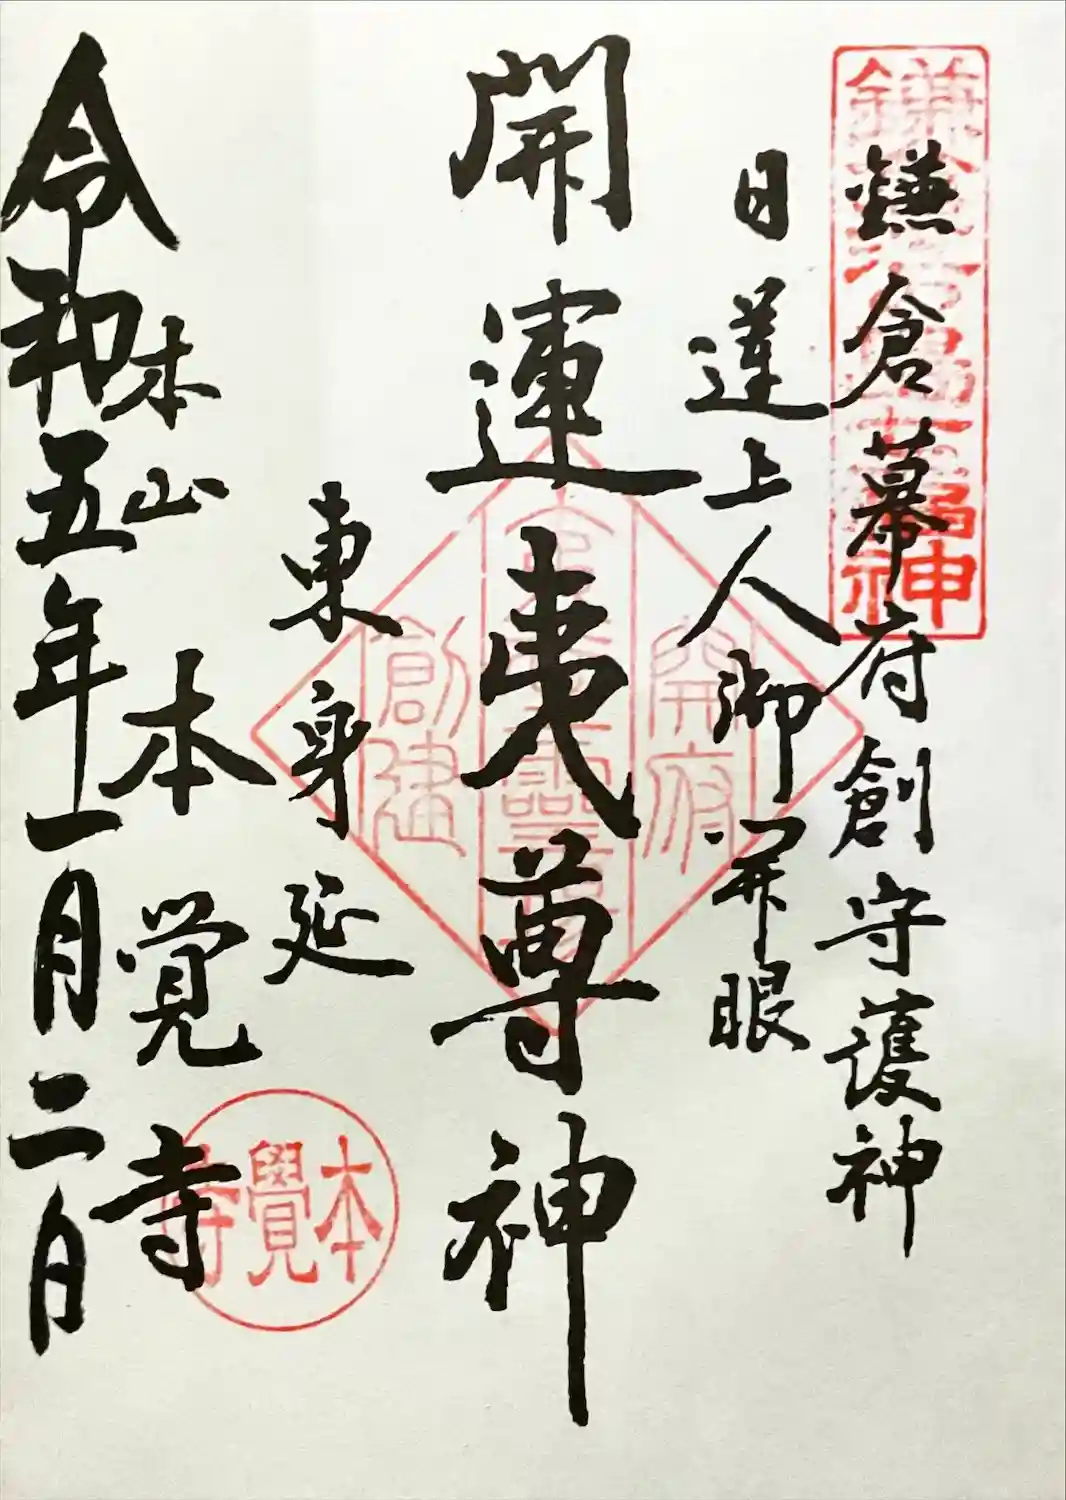 鎌倉幕府創守護神
日蓮上人御開眼
開運夷尊神
東身延
本山 本覚寺
令和五年一月二日
開府
創建
本覺寺